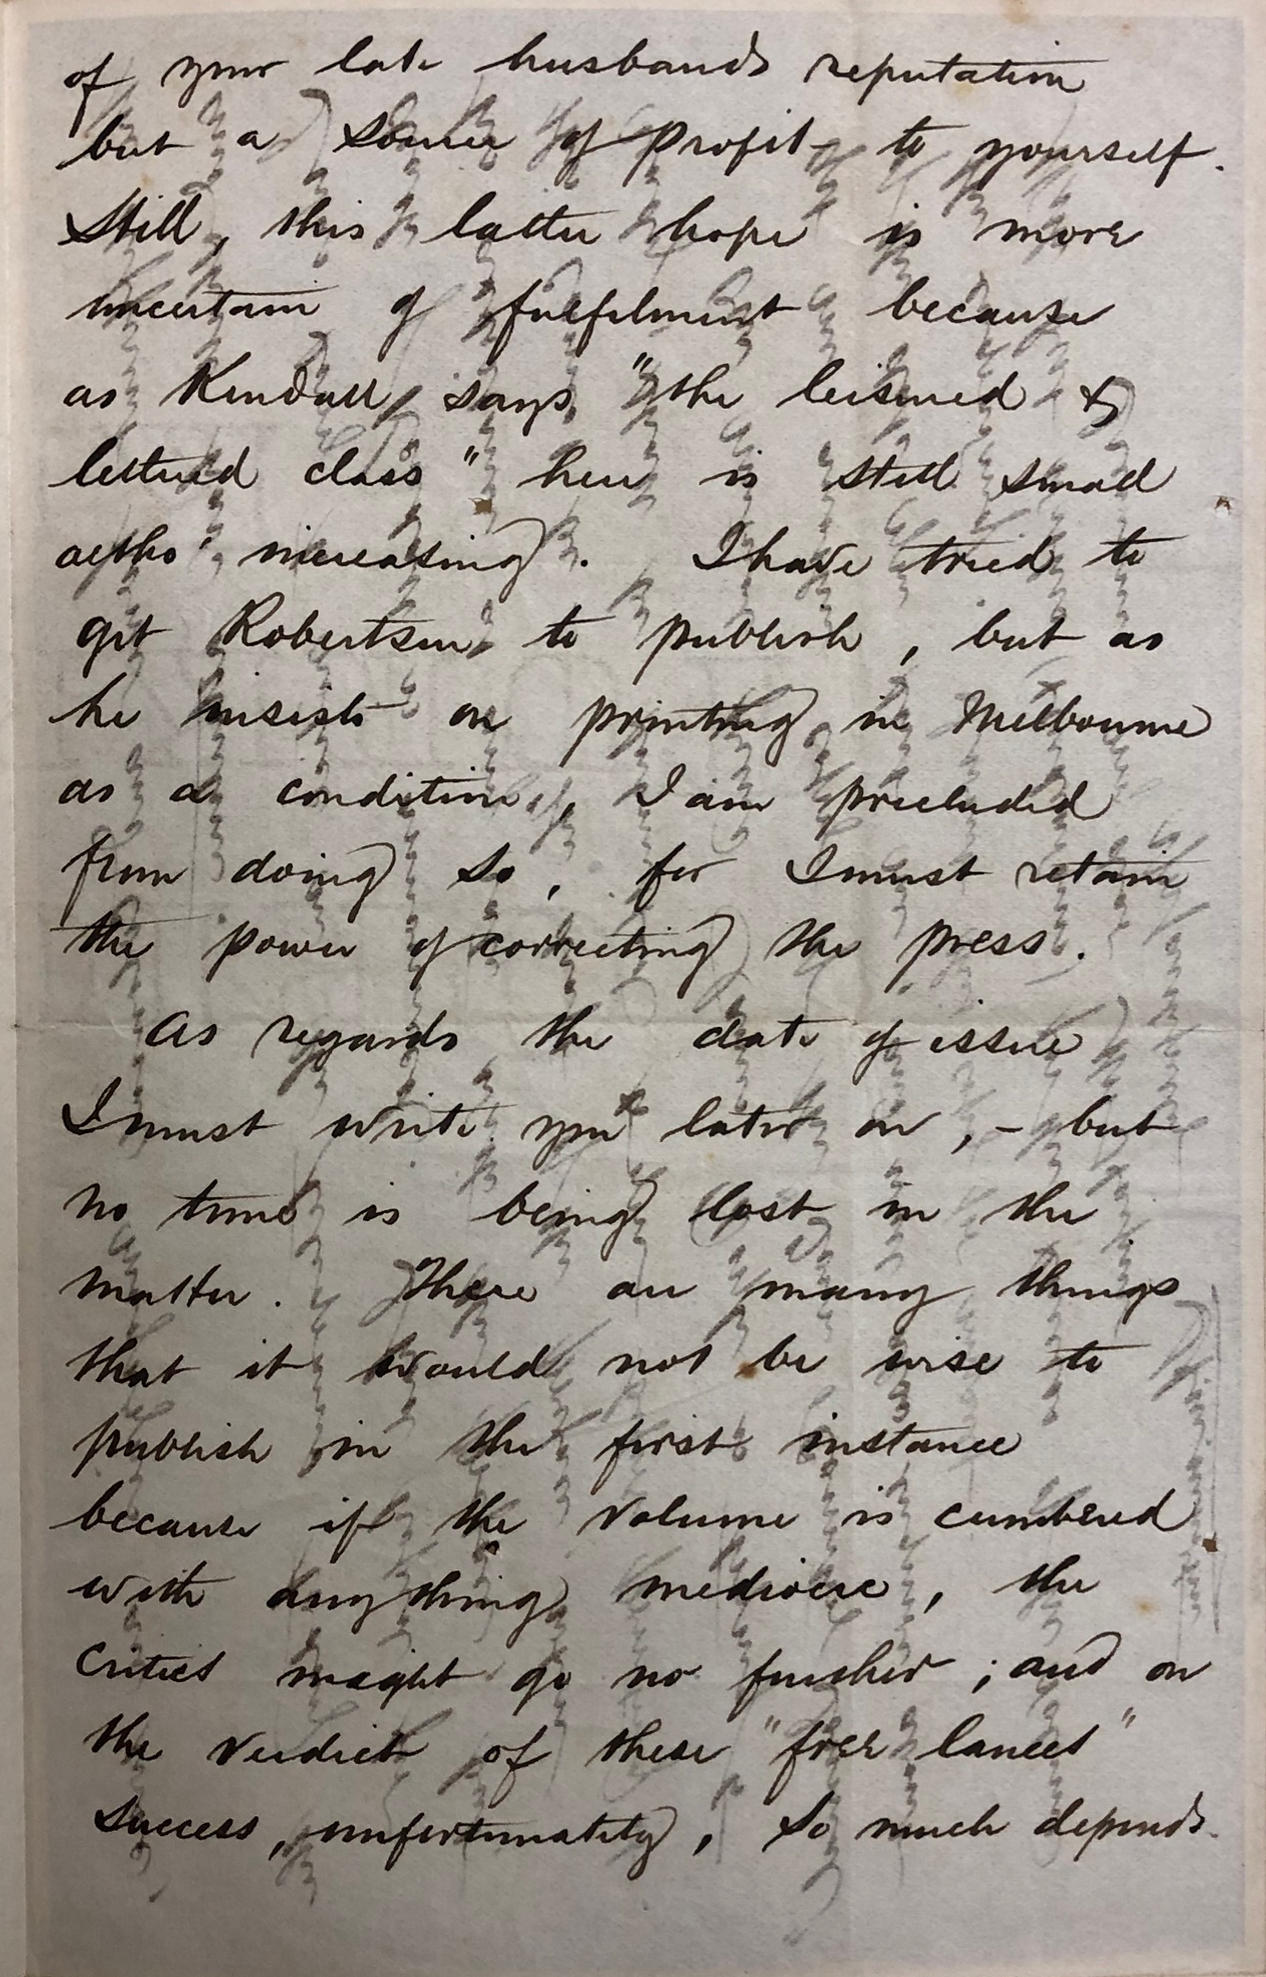 of your late husbands reputation
but a source of profit to yourself.
Still, this latter hope is more
uncertain of fulfilment because
as Kendall says "the leisured &
lettered class" here is still small
altho' increasing. I have tried to
get Robertson to publish, but as
he insists on printing in Melbourne
as a condition, I am precluded
from doing so, for I must retain
the power of correcting the press.
As regards the date of issue
I must write you later on, - but
no time is being lost in the
matter. There are many things
that it would not be wise to
publish in the first instance
because if the volume is cumbered
with anything mediocre, the
critics might go no further; and on
the verdict of these "free lances"
success, unfortunately, so much depends.